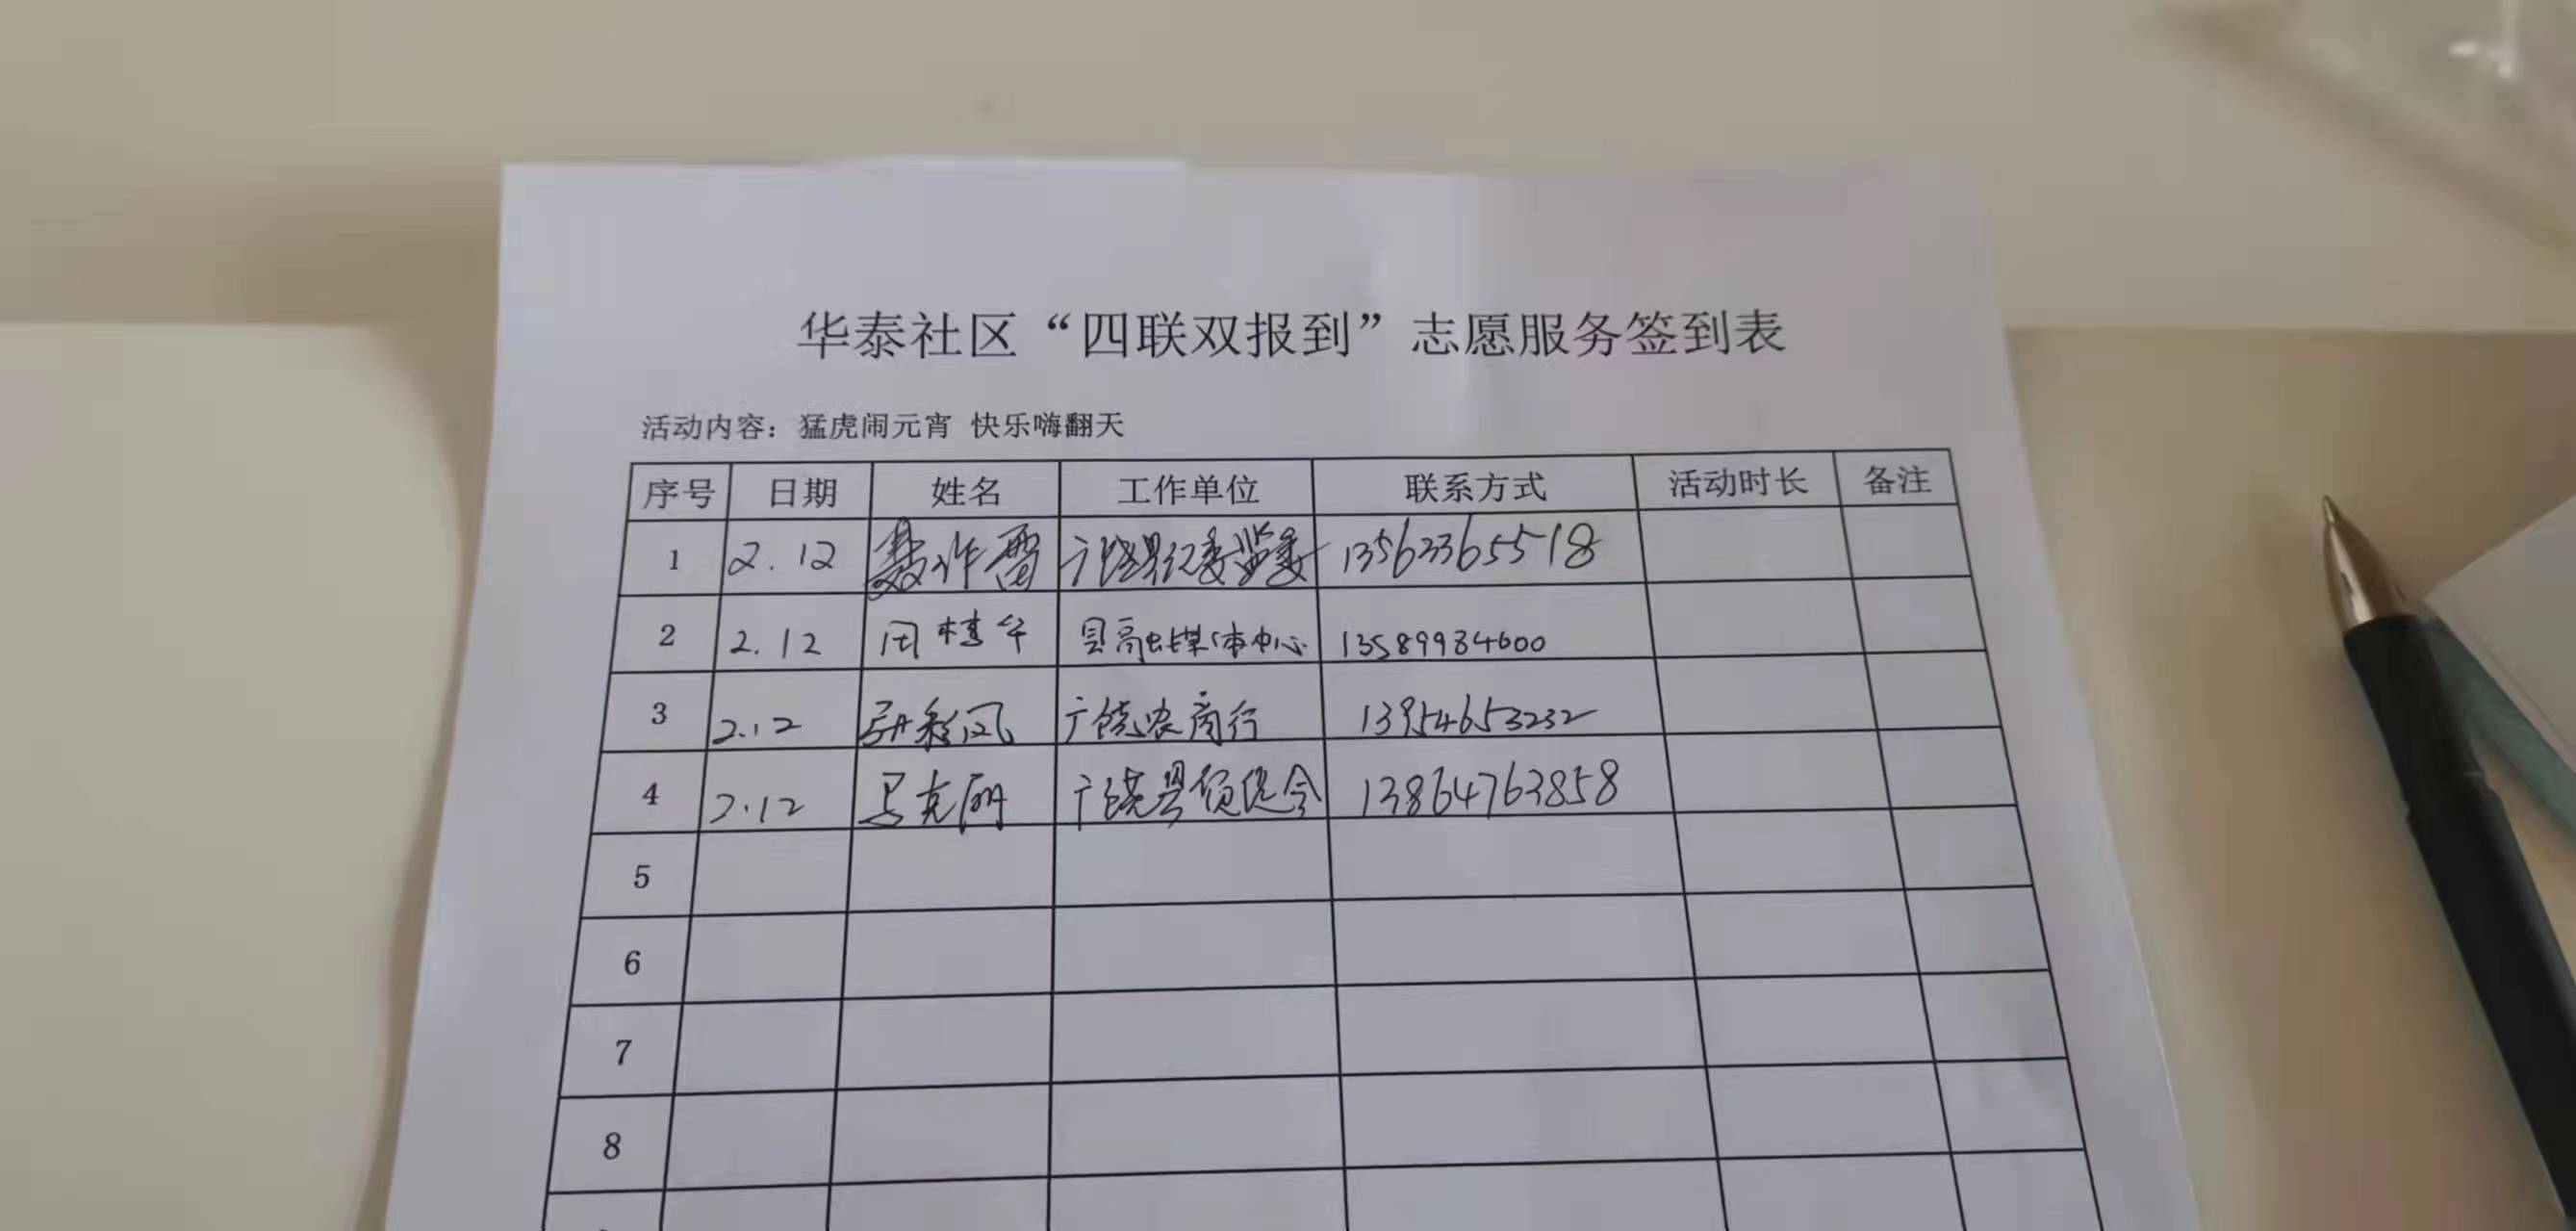 华泰社区“四联双报到”志愿服务签到表
活动内容：猛虎闹元宵 快乐嗨翻天
序号 日期 姓名 工作单位 联系方式 活动时长 备注
1 2.12 广饶县纪委监委 13563365518
2 2.12 县融媒体中心 13589984600
3 2.12 广饶农商行 13954653232
4 2.12 马克丽 广饶县 13864763858
5
6
7
8